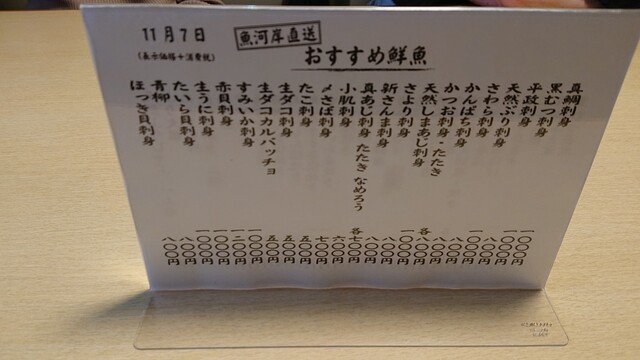 11月7日
(表示価格+消費税)
魚河岸直送
おすすめ鮮魚
真鯛刺身 一〇〇〇円
黒むつ刺身 一〇〇〇円
平政刺身 八〇〇円
天然ぶり刺身 一〇〇〇円
さわら刺身 八〇〇円
かんぱち刺身 八〇〇円
かつお刺身・たたき 各八〇〇円
天然しまあじ刺身 一〇〇〇円
さより刺身 八〇〇円
新さんま刺身 八〇〇円
真あじ刺身 たたき なめろう 各七〇〇円
小肌刺身 六〇〇円
〆さば刺身 七〇〇円
たこ刺身 五〇〇円
生ダコ刺身 五〇〇円
生ダコカルパッチョ 五〇〇円
すみいか刺身 一〇〇〇円
赤貝刺身 一二〇〇円
生うに刺身 一〇〇〇円
たいら貝刺身 一〇〇〇円
青柳刺身 八〇〇円
ほっき貝刺身 八〇〇円